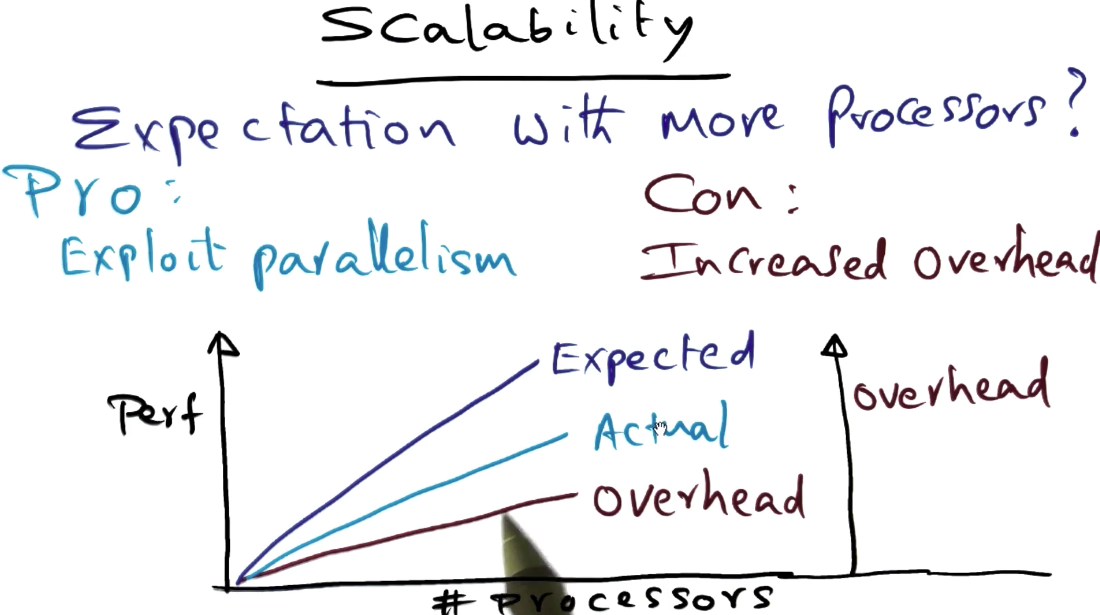 Scalability
Expectation with more Processors?
Pro:
Exploit parallelism
Con:
Increased overhead
Perf
Expected
Actual
Overhead
overhead
# Processors